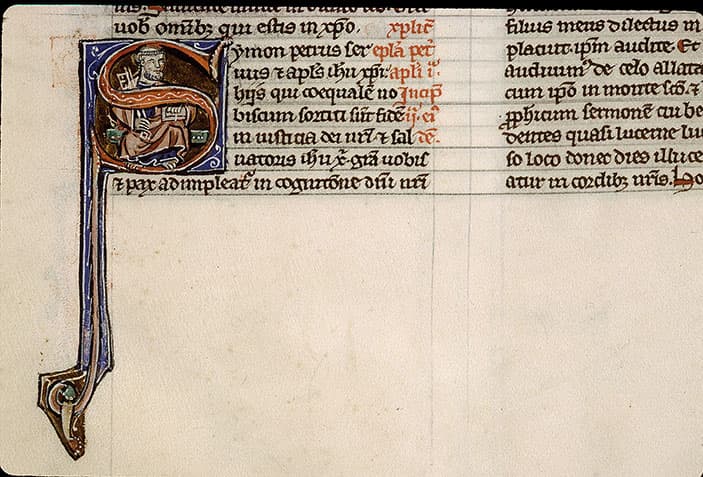 uob omībꝫ qui estis in xp̄o. xplic̄
Symon petrus ser epl̄a pet̄
uus ⁊ apl̄s ih̄u xp̄i: apl̄i ī.
hijs qui coequalē no Incip̄
biscum sortiti sūt fidē ij. ei
in iusticia dei nr̄i ⁊ sal dē.
uatoris ih̄u x̄. grā uobis
⁊ pax adimpleat᷑ in cognitōne dn̄i nr̄i
filius meus dilectus in
placuit. ip̄m audite. Et
audiuim᷒ de celo allata
cum ip̄o in monte sc̄o. ⁊
ꝓphicum sermonē cui be
dentes quasi lucerne lu
so loco donec dies illuce
atur in cordibꝫ ur̄is. Ho